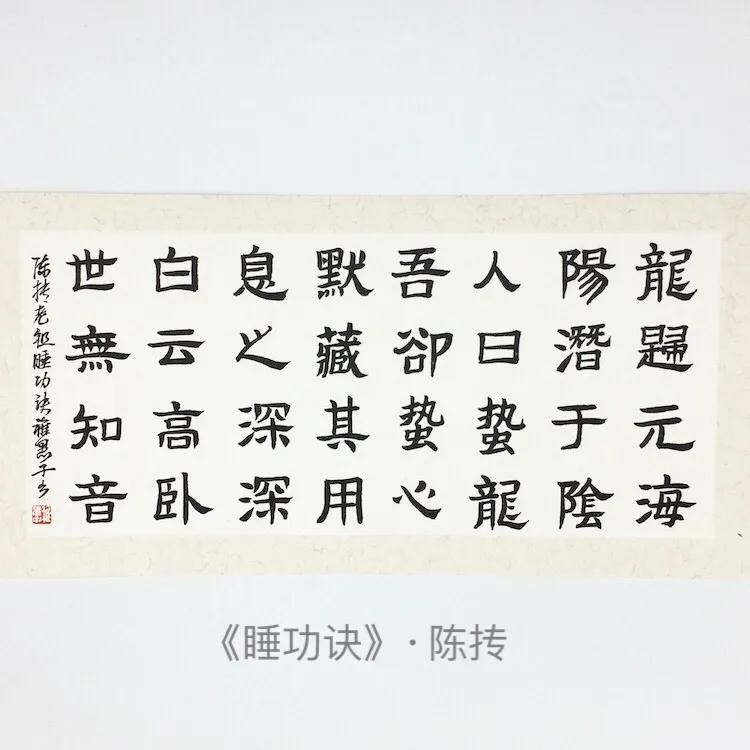 龍歸元海
陽潛于陰
人曰蟄龍
吾卻蟄心
默藏其用
息之深深
白云高卧
世無知音
陈抟老祖睡功诀雅墨子书
《睡功诀》· 陈抟